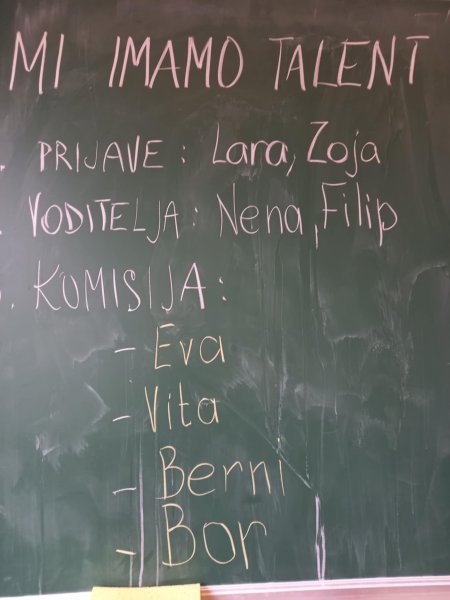 MI IMAMO TALENT
. PRIJAVE: Lara, Zoja
. VODITELJA: Nena, Filip
. KOMISIJA:
- Eva
- Vita
- Berni
- Bor